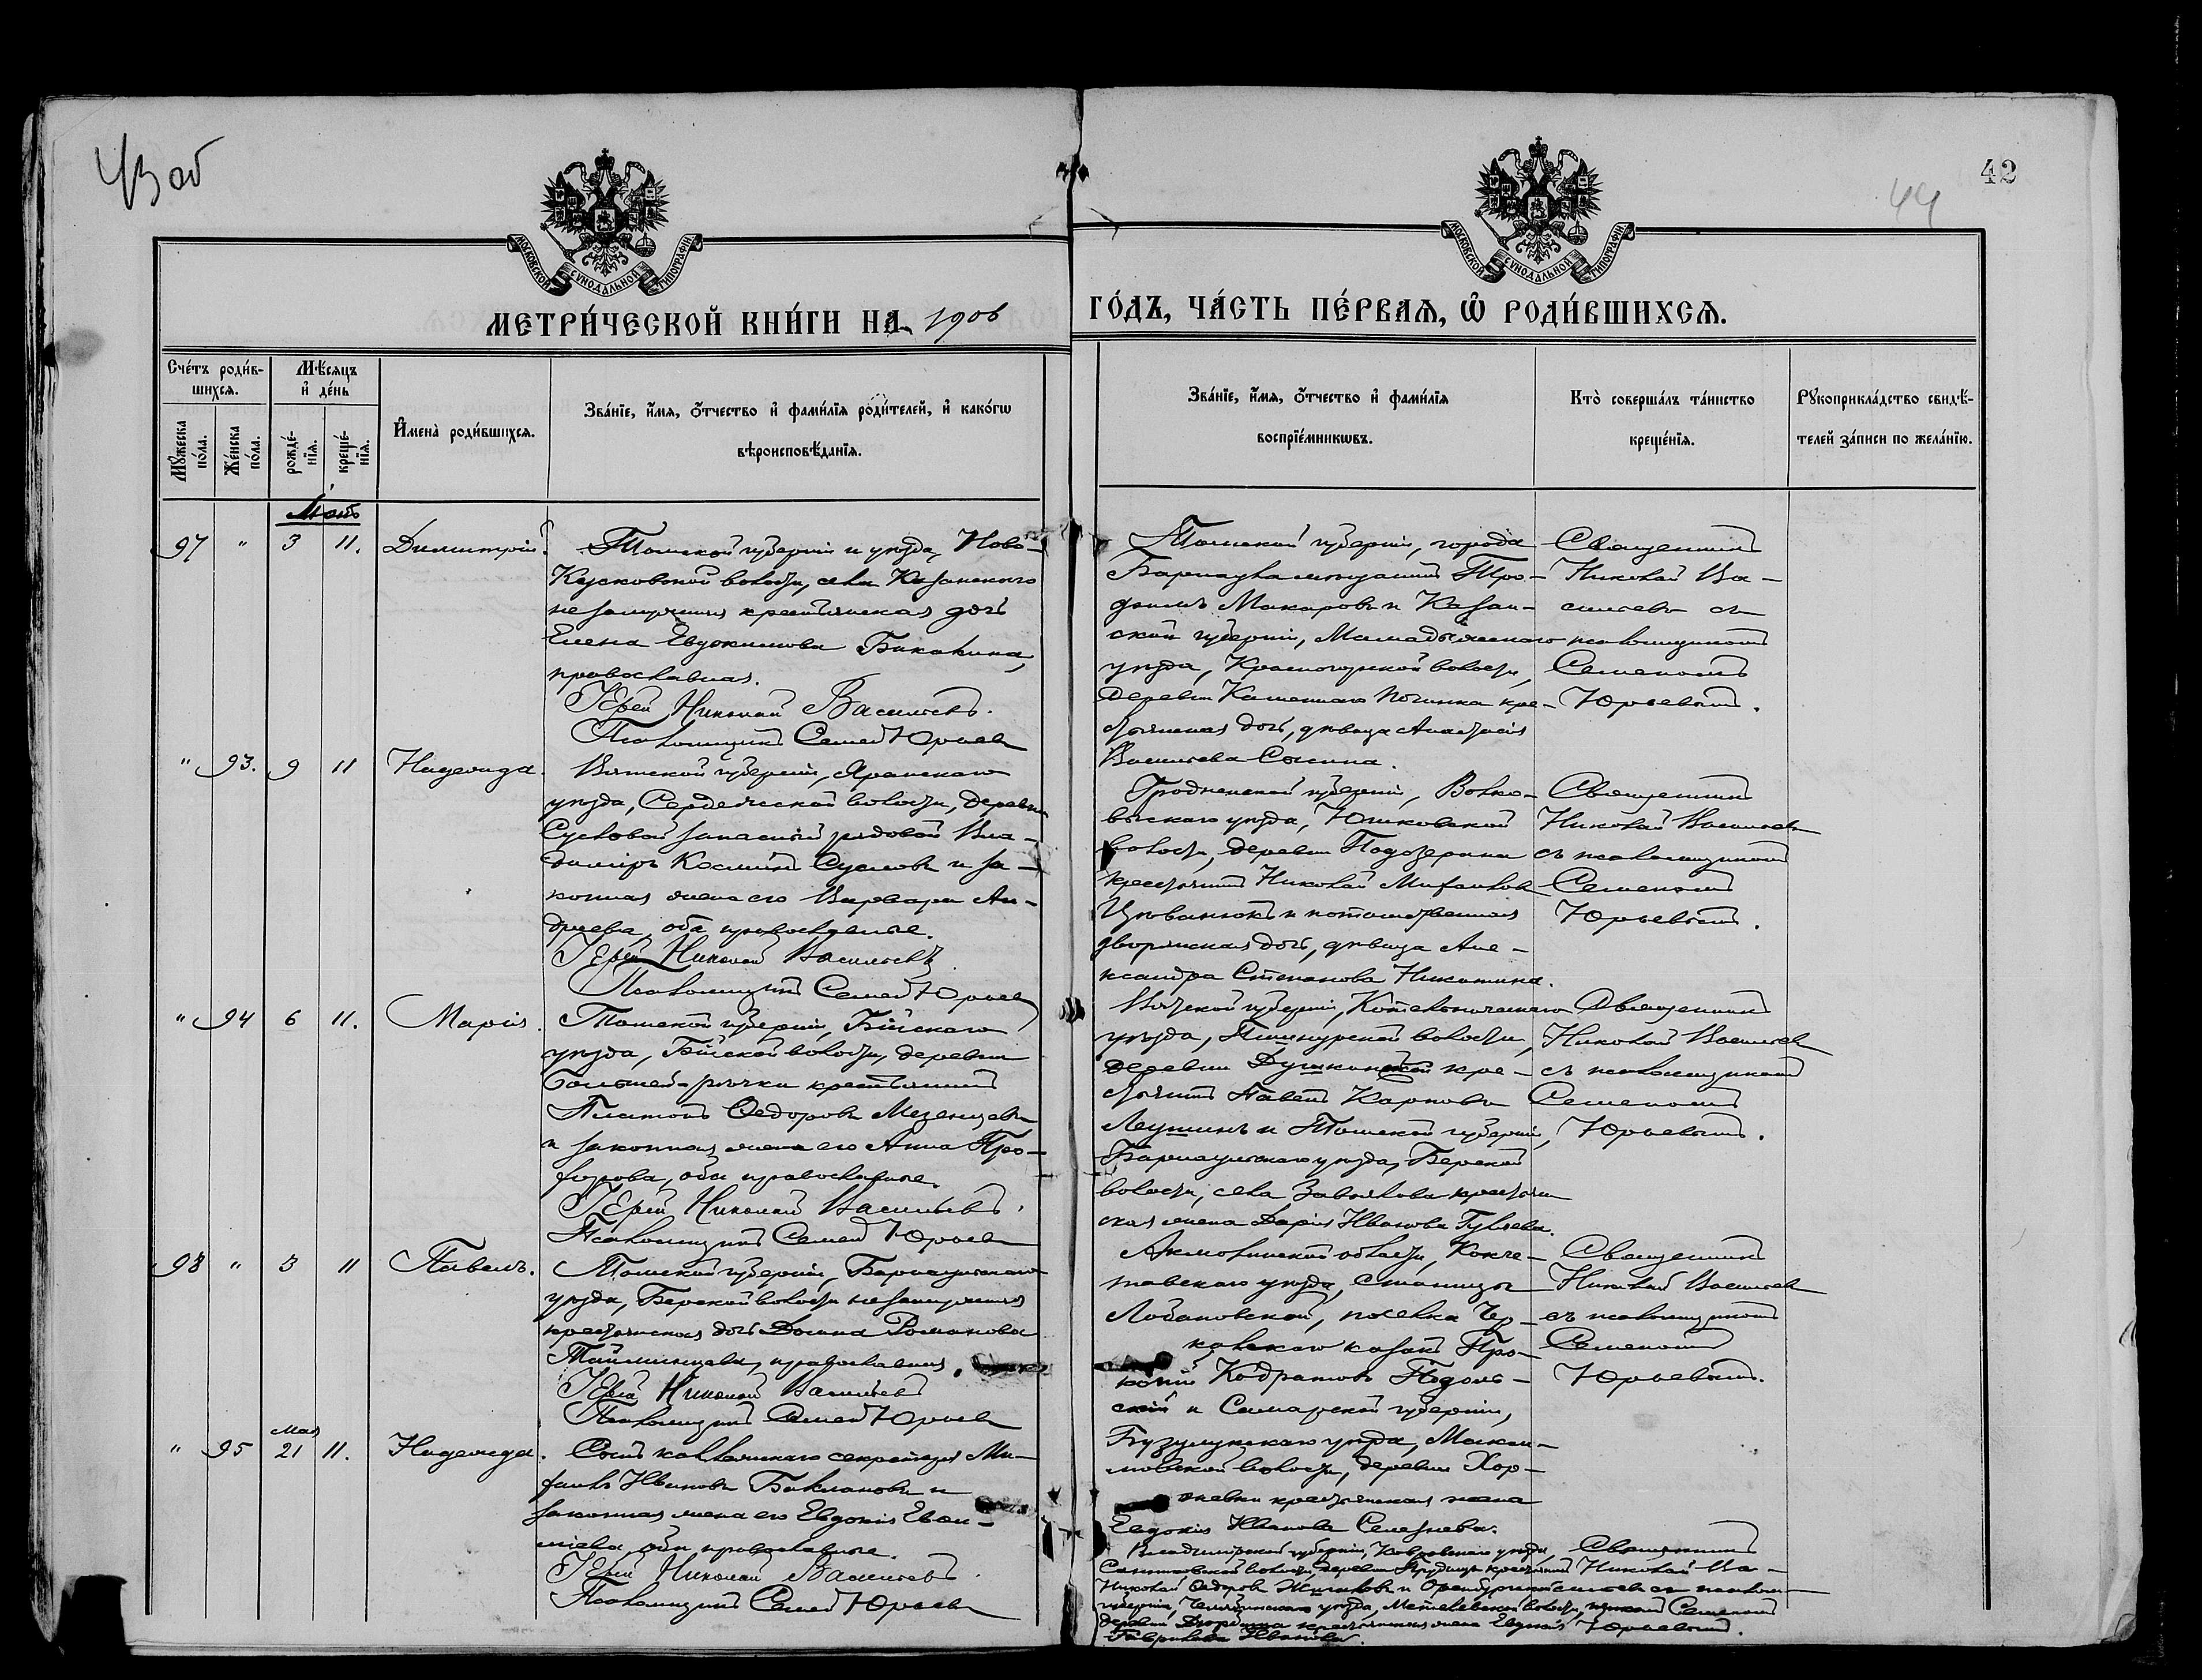 43 об
42
44
МОСКОВСКОЙ СѴНОДАЛЬНОЙ ТИПОГРАФІИ
МОСКОВСКОЙ СѴНОДАЛЬНОЙ ТИПОГРАФІИ
МЕТРИ́ЧЕСКОЙ КНИ́ГИ НА 1906
ГО́ДЪ, ЧА́СТЬ ПЕ́РВАЯ, Ѡ҆ РОДИ́ВШИХСЯ.
Сче́тъ роди́в-
шихся.
Мѣ́сяцъ
и҆ де́нь
Мꙋ́жеска
по́ла.
Же́нска
по́ла.
рожде́-
нїя.
креще́-
нїя.
И҆мена̀ роди́вшихся.
Зва́нїе, и҆́мя, ѻ҆́тчество и҆ фами́лїя роди́телей, и҆ како́гѡ
вѣроисповѣ́данїя.
Зва́нїе, и҆́мя, ѻ҆́тчество и҆ фами́лїя
воспрїе́мникѡвъ.
Кто̀ соверша́лъ та́инство
креще́нїя.
Рꙋкоприкла́дство свидѣ́-
телей за́писи по жела́нїю.
97 " 3 11. Димитрій.
Томской губерніи и уѣзда, Ново-
Кусковской волости, села Казанскаго
незамужняя крестьянская дочь
Елена Евдокимова Бакакина,
православная.
Іерей Николай Васильевъ.
Псаломщикъ Семен Юрьев
Томской губерніи, города
Барнаула мѣщанинъ Тро-
фимъ Макаровъ и Казан-
ской губерніи, Мамадышскаго
уѣзда, Красногорской волости,
деревни Каменнаго Починка кре-
стьянская дочь, дѣвица Анастасія
Васильева Сосина.
Священникъ
Николай Ва-
сильевъ съ
псаломщикомъ
Семеномъ
Юрьевымъ.
" 93. 9 11 Надежда.
Вятской губерніи, Яранскаго
уѣзда, Сердежской волости, деревни
Сусловой запасный рядовой Вла-
диміръ Косминъ Сусловъ и за-
конная жена его Варвара Ан-
дреева, оба православные.
Іерей Николай Васильевъ
Псаломщикъ Семен Юрьев
Гродненской губерніи, Волко-
выскаго уѣзда, Юшковской
волости, деревни Подозерана
крестьянинъ Николай Михаиловъ
и потомственная
дворянская дочь, дѣвица Але-
ксандра Степанова Никитина.
Священникъ
Николай Васильевъ
съ псаломщикомъ
Семеномъ
Юрьевымъ.
" 94 6 11. Марія.
Томской губерніи, Бійскаго
уѣзда, Бійской волости, деревни
Большой-рѣчки крестьянинъ
Платонъ Ѳедоровъ Мезенцевъ
и законная жена его Анна Про-
хорова, оба православные.
Іерей Николай Васильевъ.
Псаломщикъ Семен Юрьев
Вятской губерніи, Котельническаго
уѣзда, Пишнурской волости,
деревни Душкинской кре-
стьянинъ Павелъ Карповъ
Леушинъ и Томской губерніи,
Барнаульскаго уѣзда, Бердской
волости, села Завьялова крестьян
ская жена Дарія Иванова Гуляева.
Священникъ
Николай Васильевъ
съ псаломщикомъ
Семеномъ
Юрьевымъ.
98 " 3 11 Павелъ.
Томской губерніи, Барнаульскаго
уѣзда, Бердской волости незамужняя
крестьянская дочь Домна Романова
православная.
Іерей Николай Васильевъ
Псаломщикъ Семен Юрьев
Акмолинской области, Кокче-
тавскаго уѣзда, станицы
Лобановской, поселка Чер-
калскаго казакъ Про-
копій Кодратовъ Подоль-
скій и Самарской губерніи,
Бузулукскаго уѣзда, Макси-
мовской волости, деревни Хор-
ошевки крестьянская жена
Евдокія Иванова Селезнева.
Священникъ
Николай Васильевъ
съ псаломщикомъ
Семеномъ
Юрьевымъ.
" 95 Мая 21 11. Надежда.
Сынъ коллежскаго секретаря Ми-
хаилъ Ивановъ Баклановъ и
законная жена его Евдокія Евси-
гніева, оба православные.
Іерей Николай Васильевъ.
Псаломщикъ Семен Юрьев
Владимірской губерніи, Ковровскаго уѣзда,
волости, деревни крестьянинъ
Николай Ѳедоровъ и Оренбургской
губерніи, Челябинскаго уѣзда, волости,
деревни крестьянская жена Евдокія
Гаврилова Иванова.
Священникъ
Николай Ва-
сильевъ съ псалом-
щикомъ Семеномъ
Юрьевымъ.